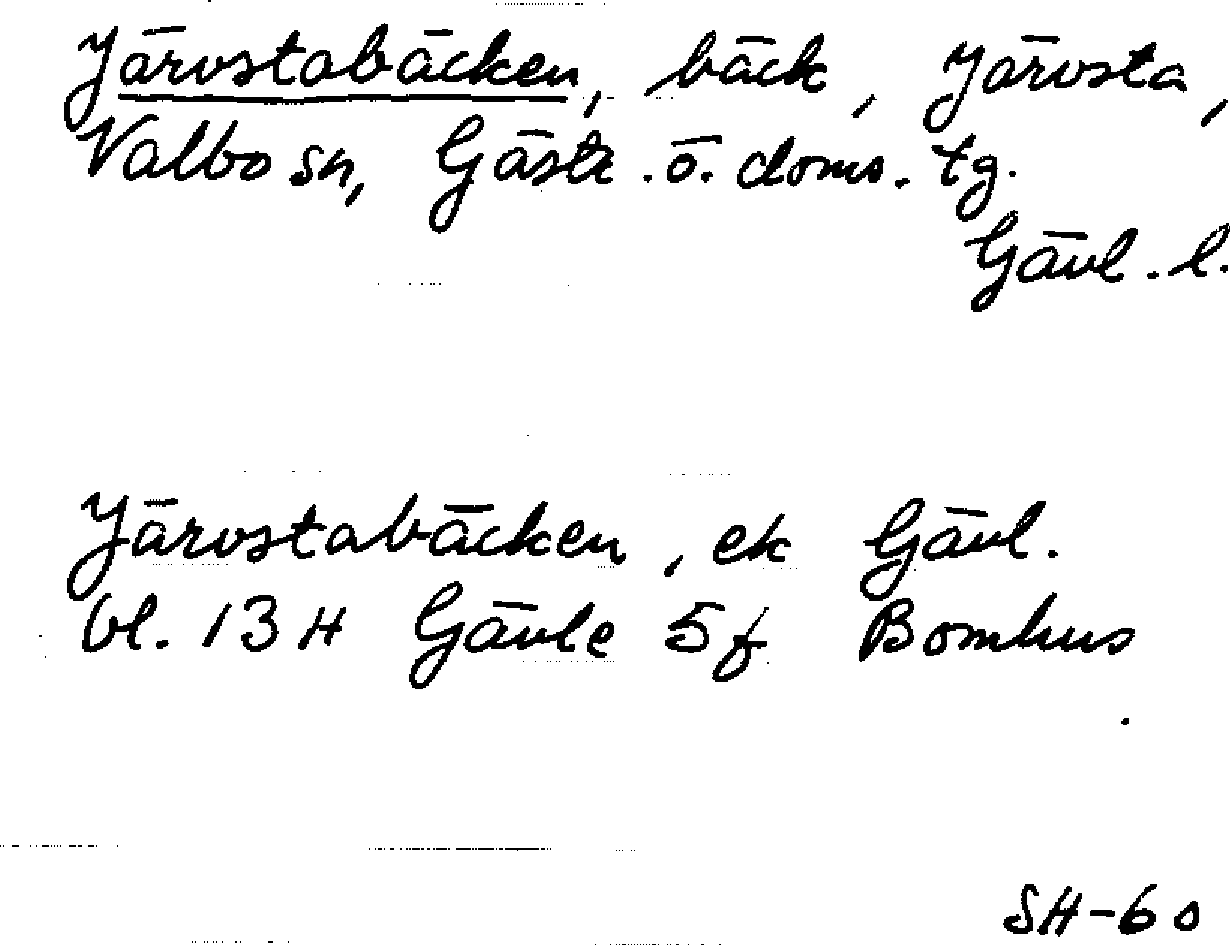 Järvstabäcken, bäck, Järvsta,
Valbo sn, Gästr. ö. doms. tg.
Gävl. l.
Järvstabäcken, ek Gävl.
bl. 13 H Gävle 5f Bomhus
SH-60